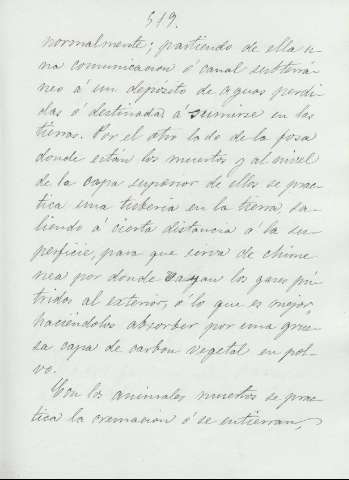 519.
normalmente; partiendo de ella u-
na comunicacion ó canal subterrá-
neo á un deposito de aguas perdi-
das ó destinadas á sumirse en las
tierras. Por el otro lado de la fosa
donde están los muertos y al nivel
de la capa superior de ellos se prac-
tica una tuberia en la tierra, sa-
liendo á cierta distancia á la su-
perficie, para que sirva de chime-
nea por donde vayan los gases pú-
tridos al exterior, ó lo que es mejor,
haciéndolos absorber por una grue-
sa capa de carbon vegetal en pol-
vo.
Con los animales muertos se prac-
tica la cremacion ó se entierran,